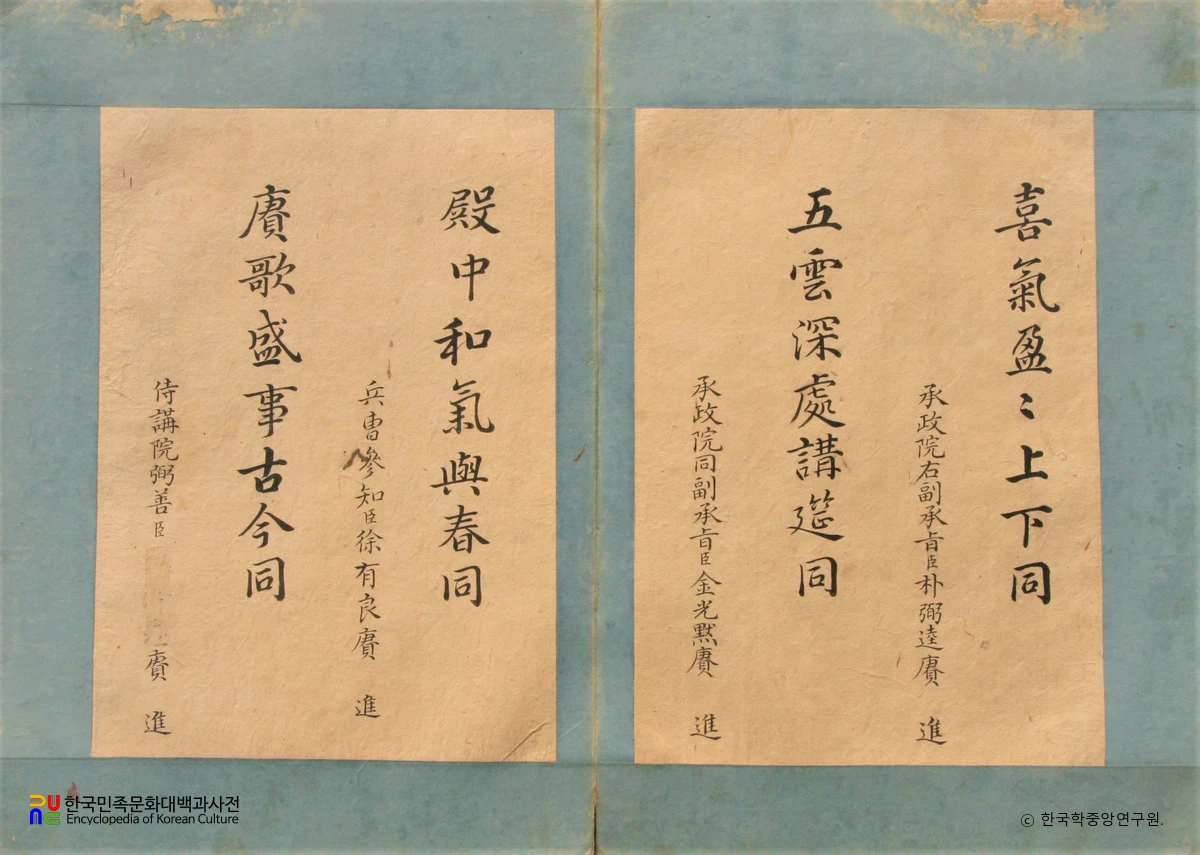 喜氣盈〻上下同
承政院右副承旨臣朴弼逵賡 進
五雲深處講筵同
承政院同副承旨臣金光默賡 進
殿中和氣與春同
兵曹參知臣徐有良賡 進
賡歌盛事古今同
侍講院弼善臣 賡 進
한국민족문화대백과사전
Encyclopedia of Korean Culture
© 한국학중앙연구원.